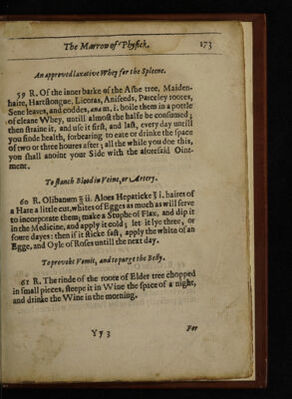 The Marrow of Physick. 173
An approved laxative Whey for the Spleene.
59 R. Of the inner barke of the Ashe tree, Maiden-
haire, Hartstongue, Licoras, Aniseeds, Parceley rootes,
Sene leaves, and coddes, ana m. i. boile them in a pottle
of cleane Whey, untill almost the halfe be consumed;
then straine it, and use it first, and last, every day untill
you finde health, forbearing to eate or drinke the space
of two or three houres after; all the while you doe this,
you shall anoint your Side with the aforesaid Oint-
ment.
To stanch Blood in Veine, or Artery.
60 R. Olibanum ℥ ii. Aloes Hepaticke ℥ i. haires of
a Hare a little cut, whites of Egges as much as will serve
to incorporate them; make a Stuphe of Flax, and dip it
in the Medicine, and apply it cold; let it lye three, or
foure dayes: then if it sticke fast, apply the white of an
Egge, and Oyle of Roses untill the next day.
To provoke Vomit, and to purge the Belly.
61 R. The rinde of the roote of Elder tree chopped
in small pieces, steepe it in Wine the space of a night,
and drinke the Wine in the morning.
Yy3 For